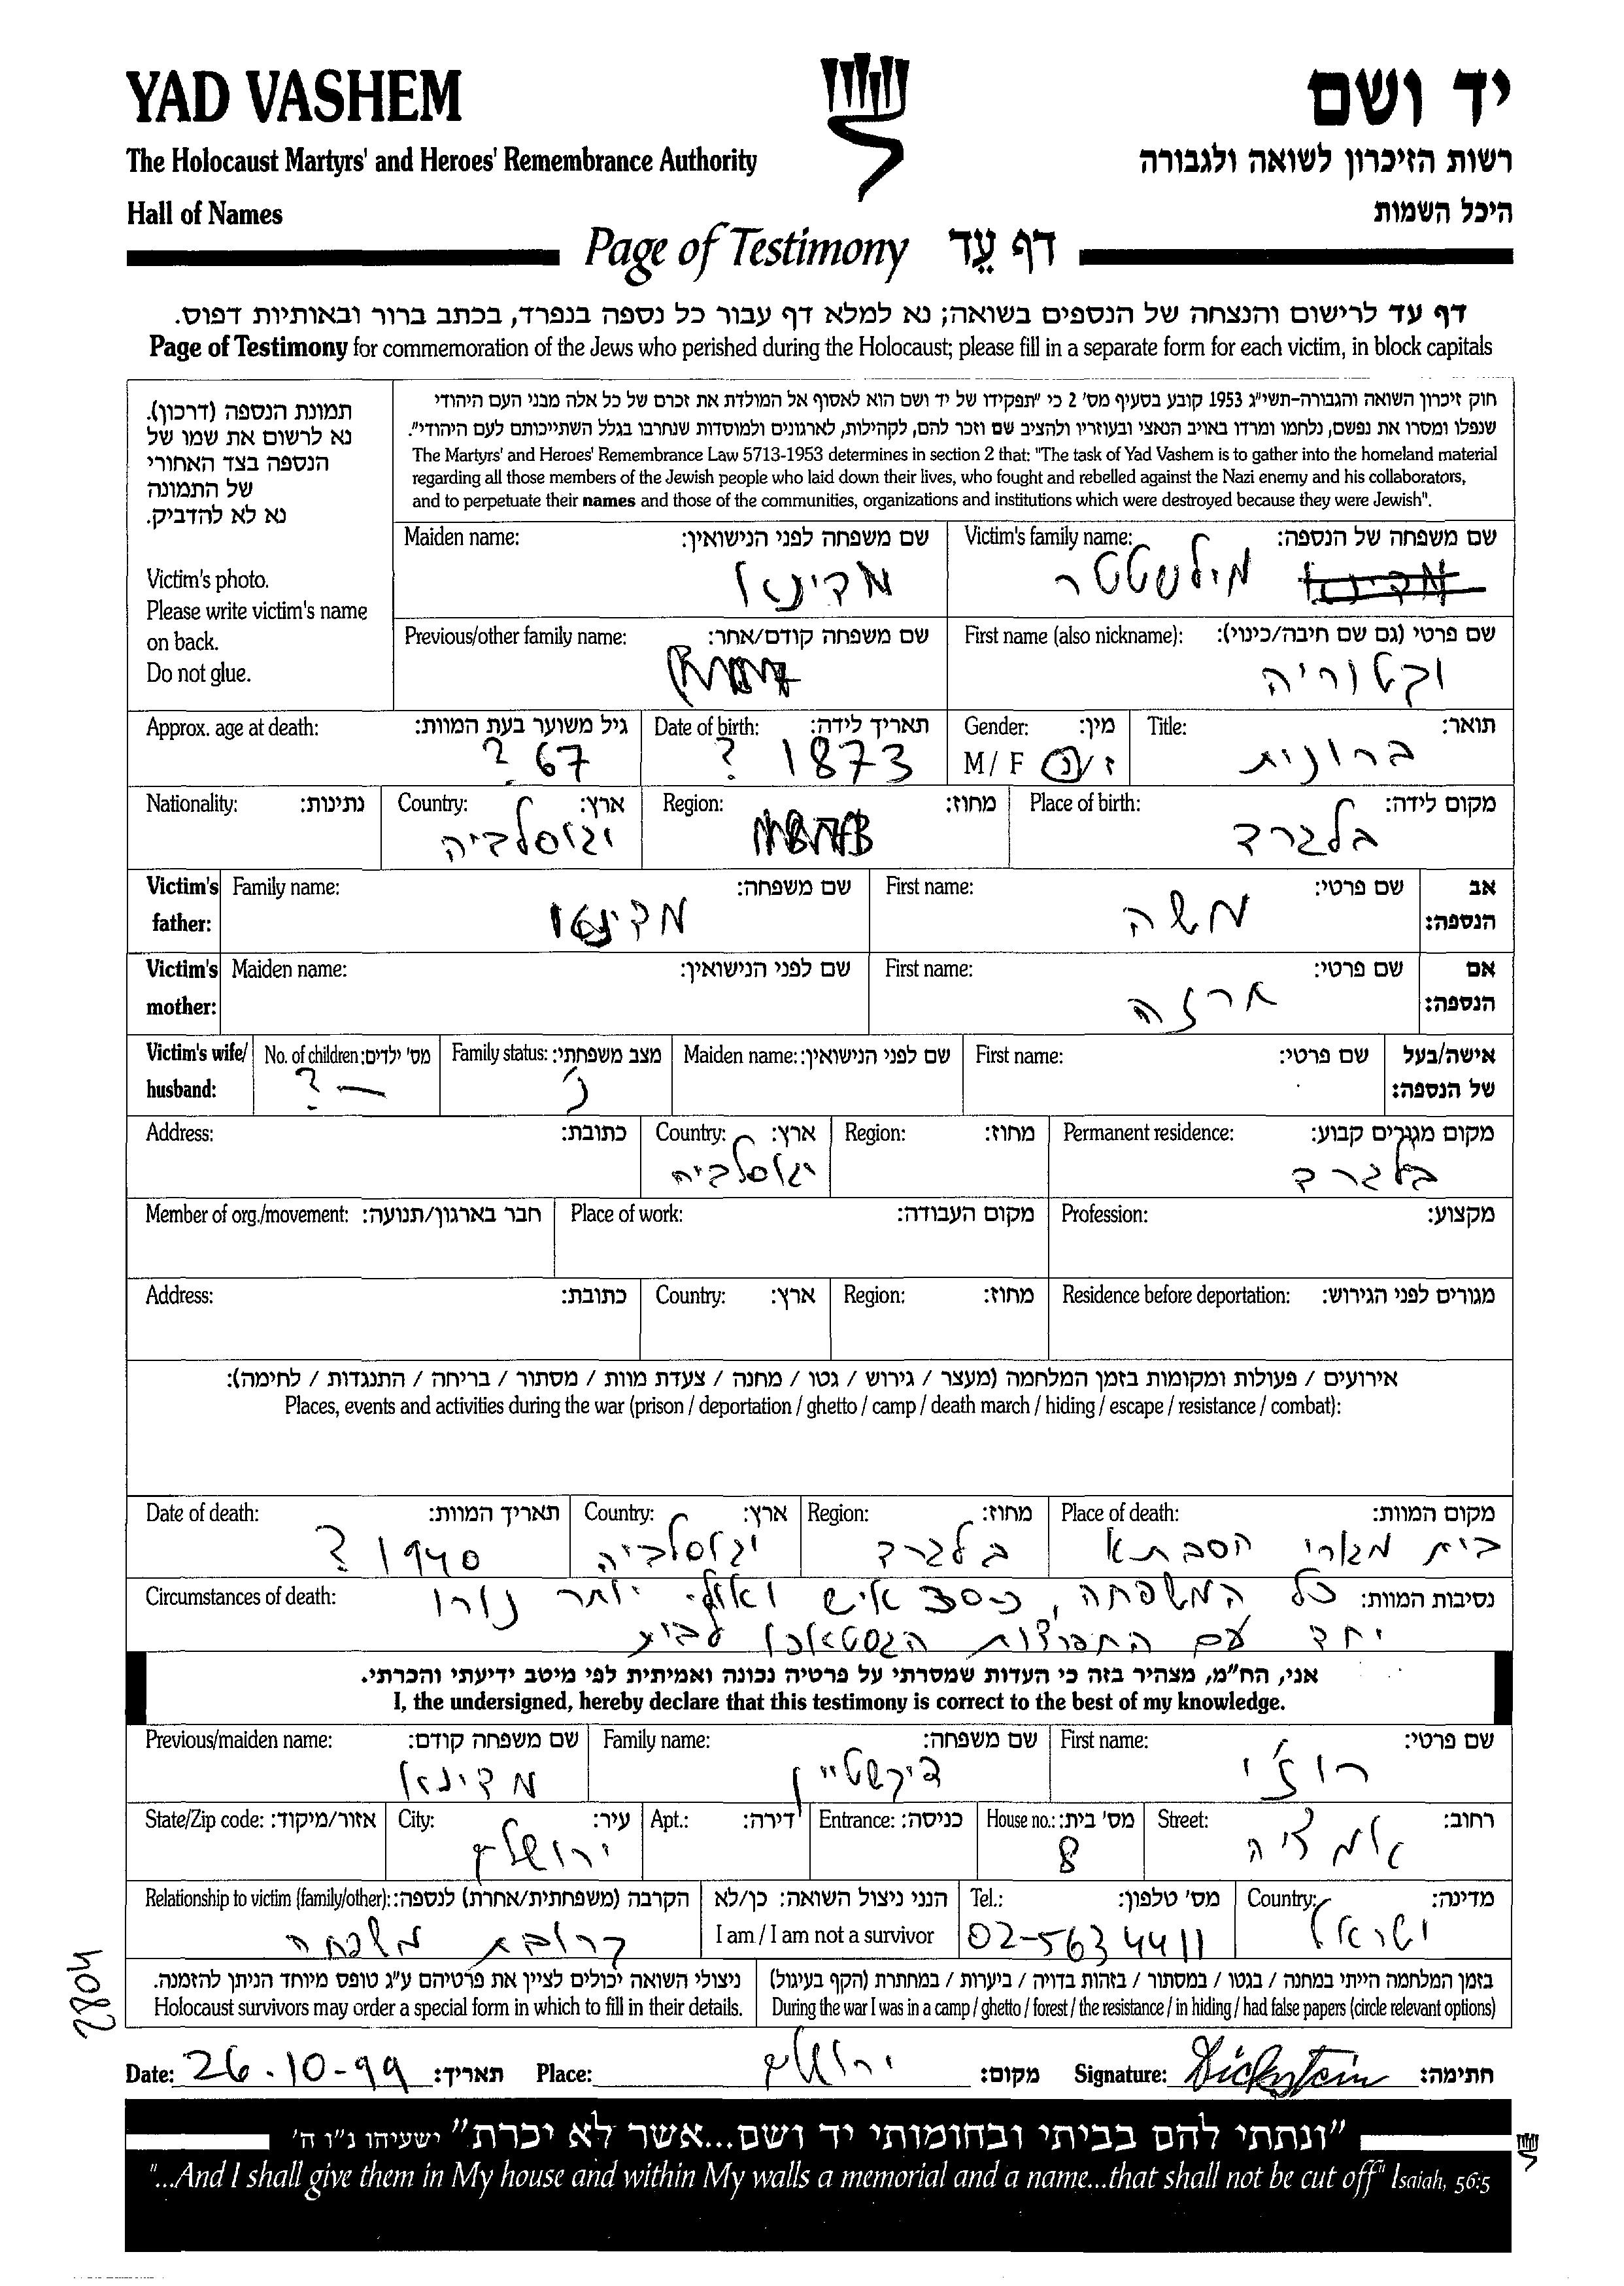 YAD VASHEM
יד ושם
The Holocaust Martyrs' and Heroes' Remembrance Authority
רשות הזיכרון לשואה ולגבורה
Hall of Names
היכל השמות
Page of Testimony דף עֵד
דף עד לרישום והנצחה של הנספים בשואה; נא למלא דף עבור כל נספה בנפרד, בכתב ברור ובאותיות דפוס.
Page of Testimony for commemoration of the Jews who perished during the Holocaust; please fill in a separate form for each victim, in block capitals
תמונת הנספה (דרכון).
נא לרשום את שמו של
הנספה בצד האחורי
של התמונה
נא לא להדביק.
Victim's photo.
Please write victim's name
on back.
Do not glue.
חוק זיכרון השואה והגבורה-תשי"ג 1953 קובע בסעיף מס' 2 כי "תפקידו של יד ושם הוא לאסוף אל המולדת את זכרם של כל אלה מבני העם היהודי
שנפלו ומסרו את נפשם, נלחמו ומרדו באויב הנאצי ובעוזריו ולהציב שם וזכר להם, לקהילות, לארגונים ולמוסדות שנחרבו בגלל השתייכותם לעם היהודי".
The Martyrs' and Heroes' Remembrance Law 5713-1953 determines in section 2 that: "The task of Yad Vashem is to gather into the homeland material
regarding all those members of the Jewish people who laid down their lives, who fought and rebelled against the Nazi enemy and his collaborators,
and to perpetuate their names and those of the communities, organizations and institutions which were destroyed because they were Jewish".
Victim's family name: שם משפחה של הנספה:
מילשטטר
Maiden name: שם משפחה לפני הנישואין:
מדינא
First name (also nickname): שם פרטי (גם שם חיבה/כינוי):
וקטוריה
Previous/other family name: שם משפחה קודם/אחר:
Title: תואר:
ברונית
Gender: מין:
M / F ז / נ
Date of birth: תאריך לידה:
1873 ?
Approx. age at death: גיל משוער בעת המוות:
67 ?
Place of birth: מקום לידה:
בלגרד
Region: מחוז:
Country: ארץ:
יגוסלביה
Nationality: נתינות:
Victim's father: אב הנספה:
First name: שם פרטי:
משה
Family name: שם משפחה:
Victim's mother: אם הנספה:
First name: שם פרטי:
Maiden name: שם לפני הנישואין:
Victim's wife/ husband: אישה/בעל של הנספה:
First name: שם פרטי:
Maiden name: שם לפני הנישואין:
Family status: מצב משפחתי:
נ'
No. of children: מס' ילדים:
— ?
Permanent residence: מקום מגורים קבוע:
בלגרד
Region: מחוז:
Country: ארץ:
יגוסלביה
Address: כתובת:
Profession: מקצוע:
Place of work: מקום העבודה:
Member of org./movement: חבר בארגון/תנועה:
Residence before deportation: מגורים לפני הגירוש:
Region: מחוז:
Country: ארץ:
Address: כתובת:
אירועים / פעולות ומקומות בזמן המלחמה (מעצר / גירוש / גטו / מחנה / צעדת מוות / מסתור / בריחה / התנגדות / לחימה):
Places, events and activities during the war (prison / deportation / ghetto / camp / death march / hiding / escape / resistance / combat):
Place of death: מקום המוות:
בית מגורי הסבתא
Region: מחוז:
בלגרד
Country: ארץ:
יגוסלביה
Date of death: תאריך המוות:
1940 ?
Circumstances of death: נסיבות המוות:
כל המשפחה, כ-30 איש ואולי יותר נורו
יחד עם התפרצות הגסטאפו לבית
אני, הח"מ, מצהיר בזה כי העדות שמסרתי על פרטיה נכונה ואמיתית לפי מיטב ידיעתי והכרתי.
I, the undersigned, hereby declare that this testimony is correct to the best of my knowledge.
First name: שם פרטי:
רוז'י
Family name: שם משפחה:
דיקשטיין
Previous/maiden name: שם משפחה קודם:
מדינא
Street: רחוב:
אמציה
House no.: מס' בית:
8
Entrance: כניסה:
Apt.: דירה:
City: עיר:
ירושלים
State/Zip code: אזור/מיקוד:
Country: מדינה:
ישראל
Tel.: מס' טלפון:
02-5634411
הנני ניצול השואה: כן/לא
I am / I am not a survivor
Relationship to victim (family/other): הקרבה (משפחתית/אחרת) לנספה:
קרובת משפחה
בזמן המלחמה הייתי במחנה / בגטו / במסתור / בזהות בדויה / ביערות / במחתרת (הקף בעיגול)
During the war I was in a camp / ghetto / forest / the resistance / in hiding / had false papers (circle relevant options)
ניצולי השואה יכולים לציין את פרטיהם ע"ג טופס מיוחד הניתן להזמנה.
Holocaust survivors may order a special form in which to fill in their details.
Date: 26.10-99 תאריך: Place: ירושלים מקום: Signature: Dickstein חתימה:
"ונתתי להם בביתי ובחומותי יד ושם...אשר לא יכרת" ישעיהו נ"ו ה'
"...And I shall give them in My house and within My walls a memorial and a name...that shall not be cut off" Isaiah, 56:5